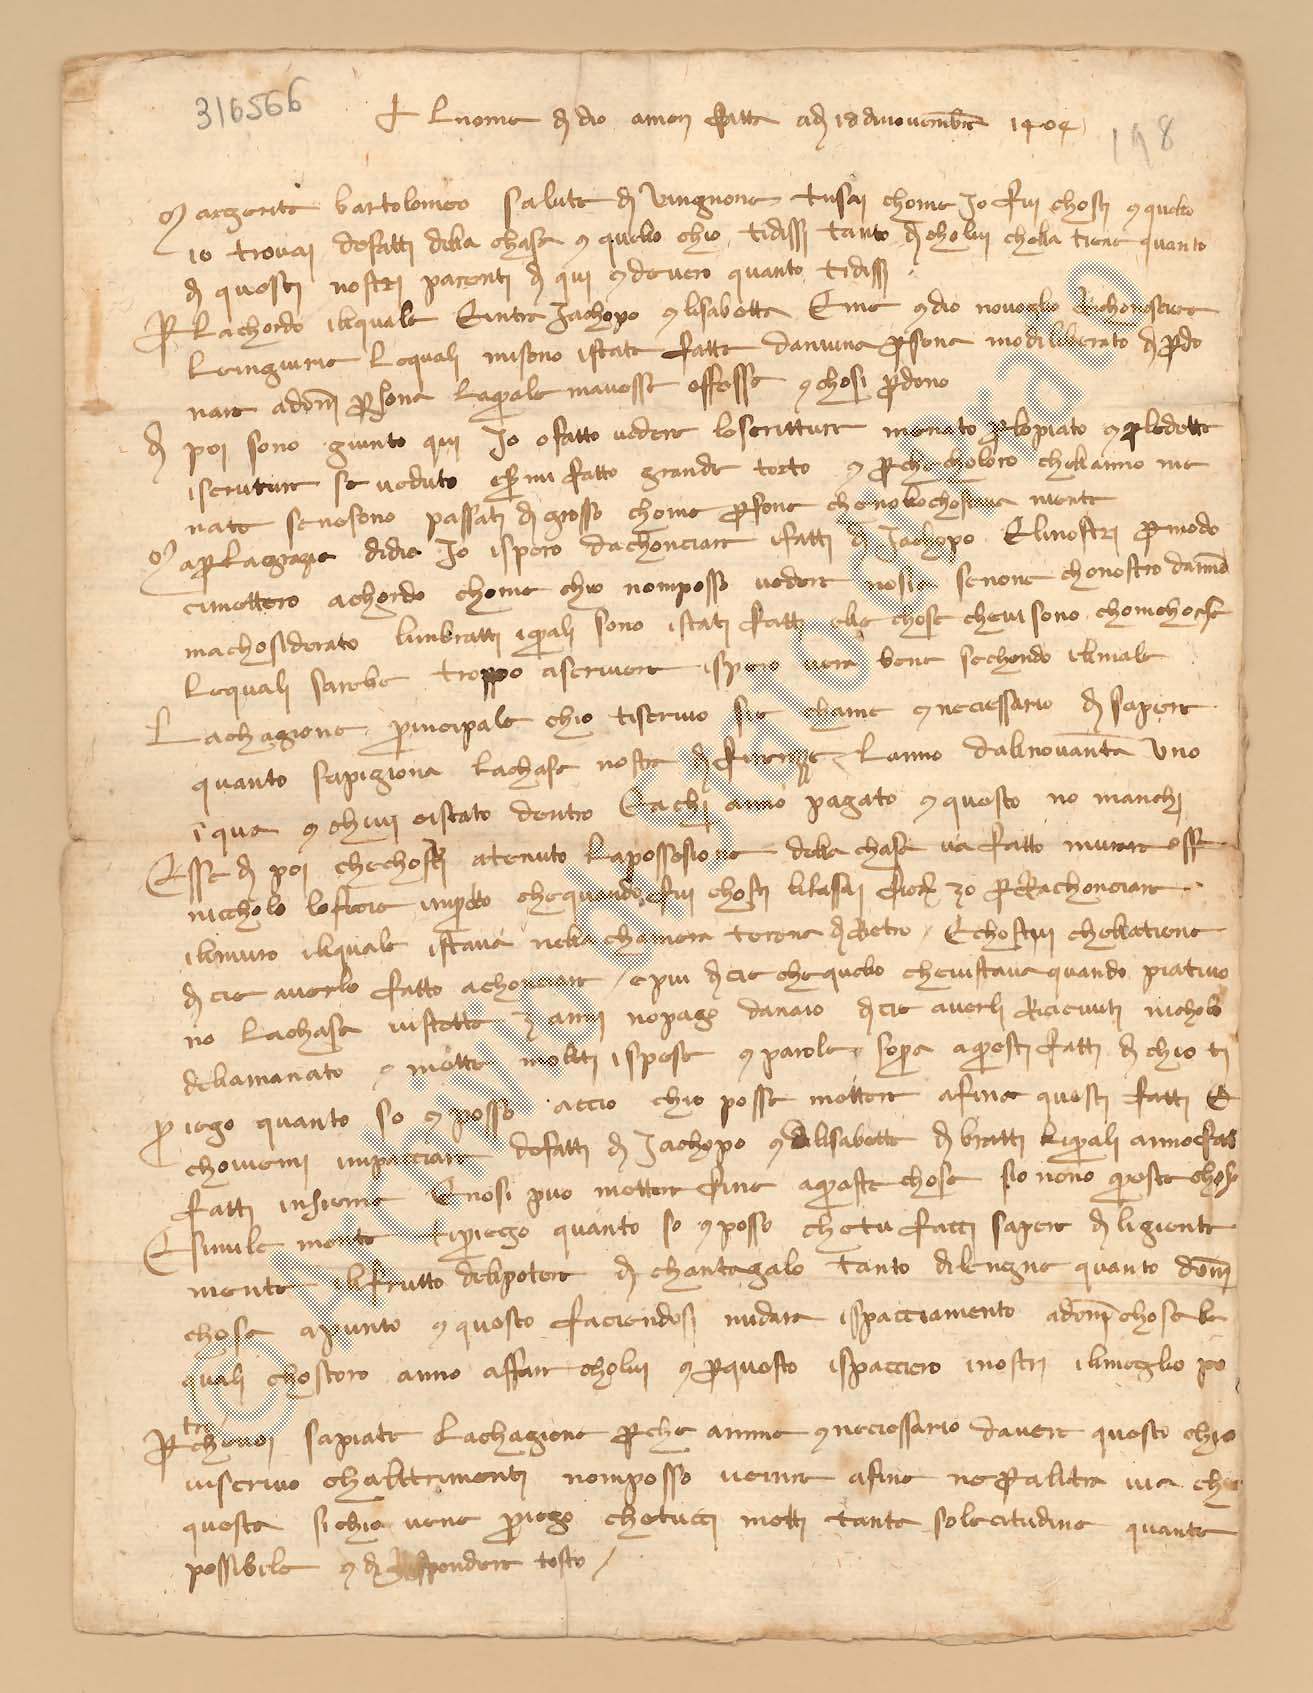 316566
198
+ Lnome di dio amen fatta adi 18 di novembre 1404
Margerita bartolomeo salute di Vingnone tusai chome Io fui chosti e quelo
io trovai defatti della chasa e quelo chio tidissi tanto di cholui chella tiene quanto
di questi nostri parenti di qui e devero quanto tidissi
Per lachordo ilquale Eintra Jachopo e lisabetta E me e dio novoglio richonosciere
leingiurie lequali misono istate fatte daniuna persona modiliberato di perdo
nare adongni persona laquale mavesse offesse e chosi perdono
Di poi sono giunto qui Io ofatto vedere lescritture menato perlopiato e perledette
iscruture se veduto essermi fatto grande torto e perche choloro chellanno me
nato senesono passati di grosso chome persone chenollochosceva mente
Ma per Lagrazia didio Io ispero dachonciare ifatti di Jachopo Elinostri per modo
cimettero achordo chome chio nomposso vedere nosia senone chonostro danno
machosiderato linbratti iquali sono istati fatti elle chose chevi sono chomchorse
lequali sarebe troppo ascrivere ispero vera bene sechondo ilmale
Lachagione principale chio tiscrivo sie chame e neciessario di sapere
quanto sapigiona lachasa nostra di firenze Lanno dallnovanta Uno
i qua e chivi eistato dentro E achi anno pagato e questo no manchi
E sse di poi chechosti atenuto lapossesione della chasa va fatto murare esse
nicholo lofecie inpero chequando fui chosti lilassai fior 30 per Rachonciare
ilmuro ilquale istava nella chamera terena dirietro / Echostui chellatiene
dicie averlo fatto achonciare / e piu dicie chequelo chevistava quando piativo
no lachasa vistette 3 anni nopago danaio dicie averli Ricievuti nicholo
dellamanato e mette molti ispese e parole sopra aquesti fatti di chio ti
priego quanto so e posso accio chio possa mettere afine questi fatti E
chonviemi inpacciare defatti di Jachopo e dilisabetta di bratti liquali annofas
fatti insieme Enosi puo mettere fine aqueste chose sio nono queste chose
E simile mente tipriego quanto so e posso chetu facci sapere diligiente
mente ilfrutto delpotere di chantagalo tanto dilengne quanto dongni
chosa apunto e questo faciendosi midara ispacciamento adongni chosa le
quali chostoro anno affare cholui e perquesto ispacciero inostri ilmeglio po
tro
Per chevoi sapiate lachagione perche amme e neciessario davere questo chio
viscrivo chalttrimenti nomposso venire afine neperalttra via che
questa siche vene priego chetucci metti tanta solecitudine quanta
possibile e di rispondere tosto /